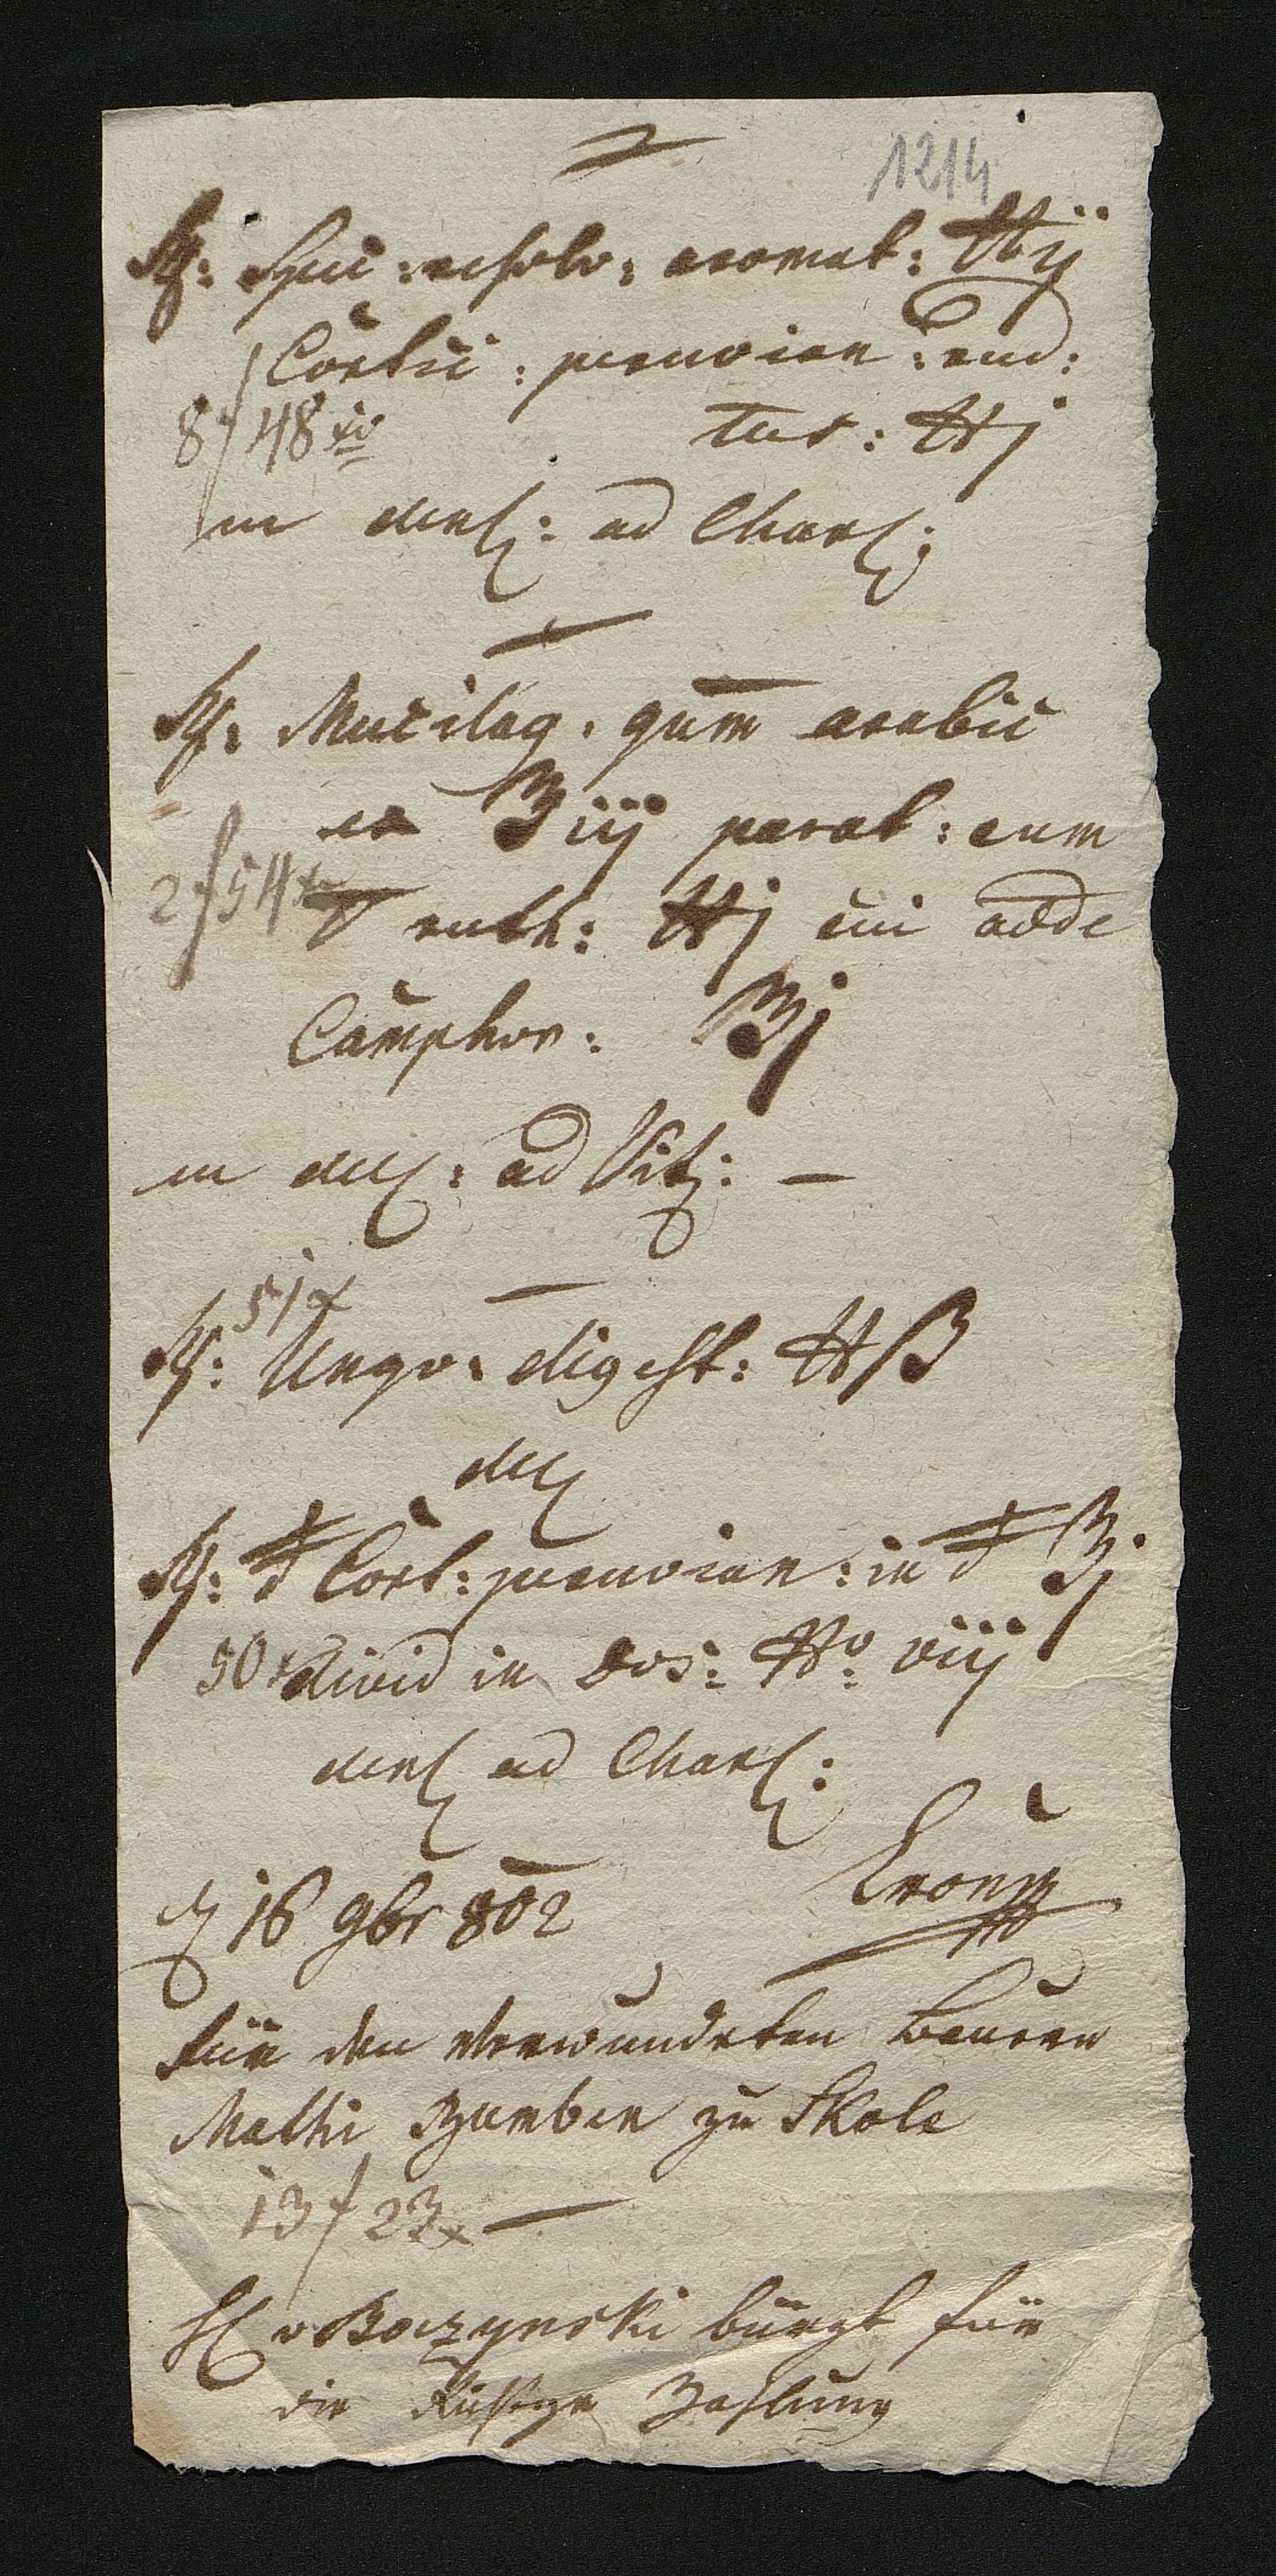 1214
Rp: Spec: resolv: aromat: ℔ij
Cortic: peruvian: rud:
8f 48 xr tus: ℔j
m detur: ad Chart:
Rp: Mucilag. gum arabic
ex ℥iij parat: cum
2f 54x ruth: ℔j cui adde
Camphor: ℥j
m ad Vitr: —
51x
Rp: Ungv: digest: ℔ß
Rp: Cort: peruvian: in ℥j
50x divid in dos: No: viij
ad Chart:
16 9br 802
für den verwundeten Bauern
Mathi zu Skole
13f 23x —
H v Boczynski bürgt für
die Zahlung